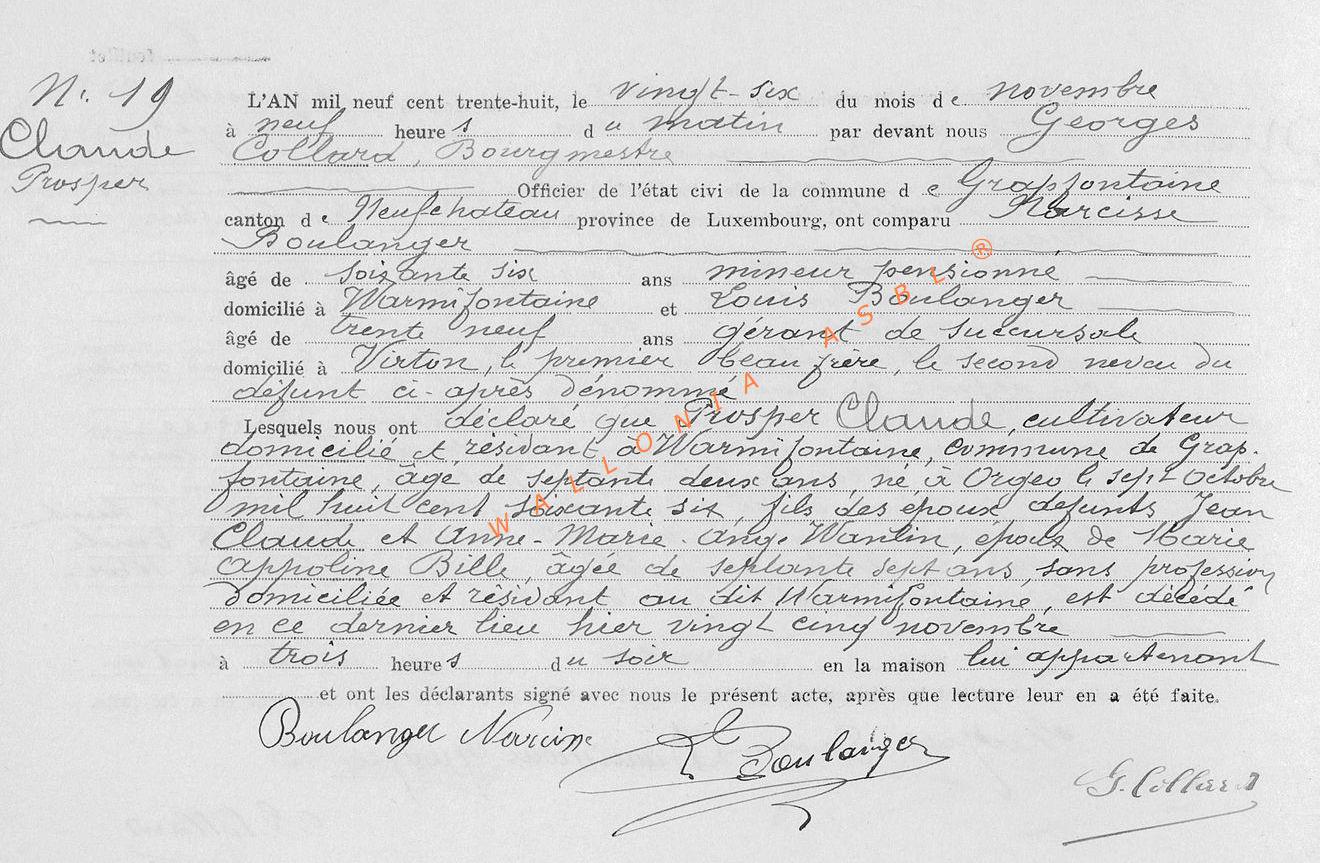 N. 19
Claude
Prosper
L'AN mil neuf cent trente-huit, le vingt-six du mois de novembre
à neuf heures du matin par devant nous Georges
Collard, Bourgmestre
Officier de l'état civi de la commune de Grapfontaine
canton de Neufchateau province de Luxembourg, ont comparu Narcisse
Boulanger
âgé de soixante six ans mineur pensionné
domicilié à Warmifontaine et Louis Boulanger
âgé de trente neuf ans gérant de succursale
domicilié à Virton, le premier beau frère, le second neveu du
défunt ci-après dénommé
Lesquels nous ont déclaré que Prosper Claude, cultivateur
domicilié et résidant à Warmifontaine, commune de Grap-
fontaine, âgé de septante deux ans, né à Orgeo le sept Octobre
mil huit cent soixante six, fils des époux défunts Jean
Claude et Anne-Marie-Ange Wanlin, époux de Marie
Appoline Bille, âgée de septante sept ans, sans profession
domiciliée et résidant au dit Warmifontaine, est décédé
en ce dernier lieu hier vingt cinq novembre
à trois heures du soir en la maison lui appartenant
et ont les déclarants signé avec nous le présent acte, après que lecture leur en a été faite.
Boulanger Narcisse L Boulanger
G. Collard
WALLONIA ASBL ®